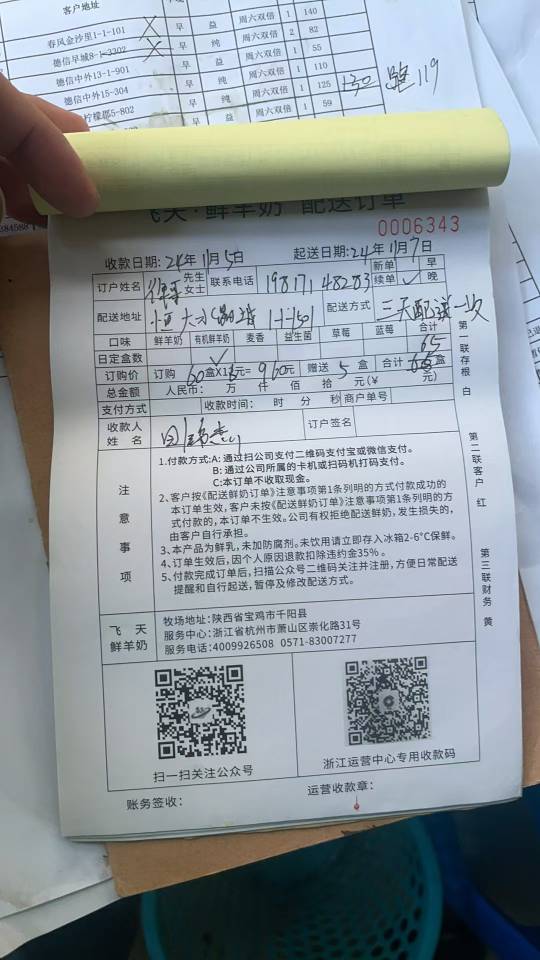 客户地址
春风金沙里1-1-101 早 益 周六双倍 1 140
德信早城8-1-3302 早 纯 周六双倍 2 82
德信中外13-1-901 早 益 周六双倍 1 55
德信中外15-304 早 纯 周六双倍 1 110
柠檬郡5-802 早 纯 周六双倍 1 125 130
早 益 周六双倍 1 59
119
飞天·鲜羊奶 配送订单
0006343
收款日期:24年11月5日 起送日期:24年11月7日
订户姓名 先生 女士 联系电话 19817148283 新单 续单 ✓ 早 晚
配送地址 1-1-1501 配送方式 三天配送一次
口味 鲜羊奶 有机鲜羊奶 麦香 益生菌 草莓 蓝莓 合计
日定盒数 ✓ 65
订购价 订购 60盒X16元=960元 赠送 5 盒 合计 65 盒
总金额 人民币: 万 仟 佰 拾 元(¥ 元)
支付方式 收款时间: 时 分 秒 商户单号
收款人姓名 订户签名
注意事项
1.付款方式:A:通过扫公司支付二维码支付宝或微信支付。
B:通过公司所属的卡机或扫码机打码支付。
C:本订单不收取现金。
2、客户按《配送鲜奶订单》注意事项第1条列明的方式付款成功的
本订单生效,客户未按《配送鲜奶订单》注意事项第1条列明的方
式付款的,本订单不生效。公司有权拒绝配送鲜奶,发生损失的,
由客户自行承担。
3、本产品为鲜乳,未加防腐剂。未饮用请立即存入冰箱2-6°C保鲜。
4、订单生效后,因个人原因退款扣除违约金35%。
5、付款完成订单后,扫描公众号二维码关注并注册,方便日常配送
提醒和自行起送,暂停及修改配送方式。
第一联存根 白
第二联客户 红
第三联财务 黄
飞天
鲜羊奶
牧场地址:陕西省宝鸡市千阳县
服务中心:浙江省杭州市萧山区崇化路31号
服务电话:4009926508 0571-83007277
扫一扫关注公众号
浙江运营中心专用收款码
账务签收:
运营收款章: